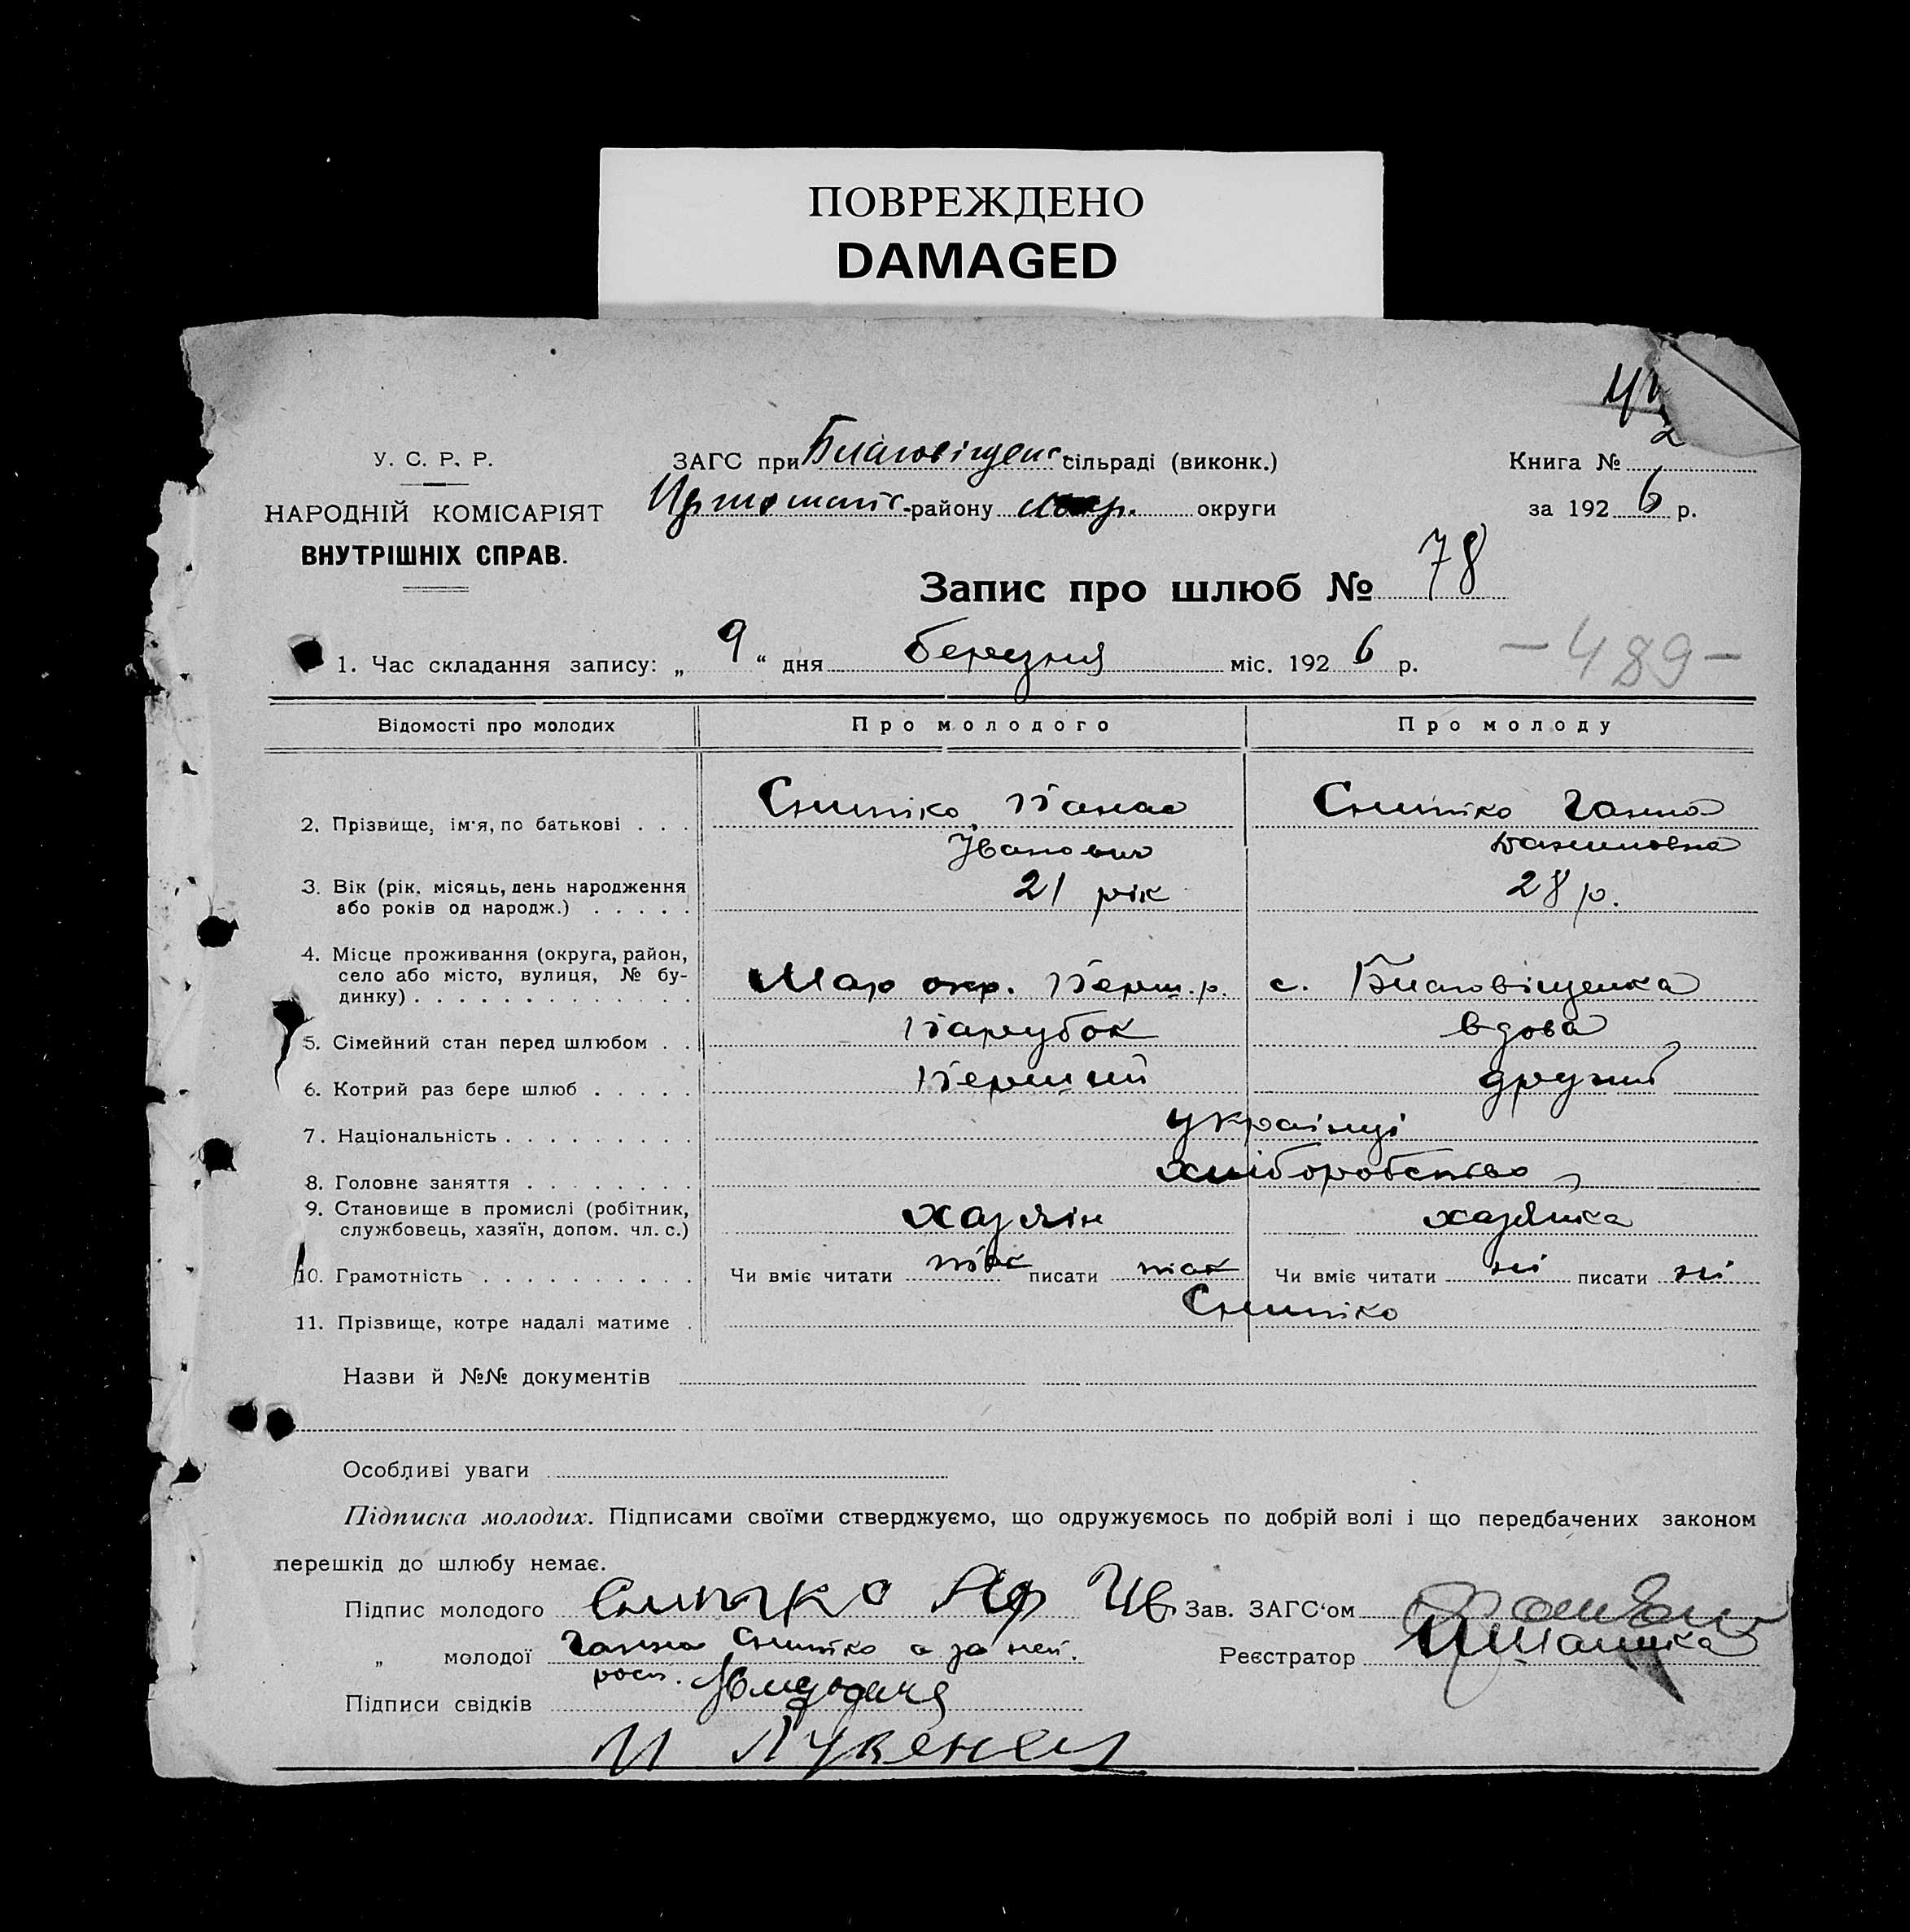 ПОВРЕЖДЕНО
DAMAGED
У. С. Р. Р.
НАРОДНІЙ КОМІСАРІЯТ
ВНУТРІШНІХ СПРАВ.
ЗАГС при Благовіщенс. сільраді (виконк.)
району окр. округи
Книга №
за 1926 р.
Запис про шлюб № 78
1. Час складання запису: „ 9 “ дня березня міс. 1926 р.
— 489 —
Відомості про молодих Про молодого Про молоду
2. Прізвище, ім'я, по батькові . . . Снитко Панас Снитко Ганна
Іванович
3. Вік (рік. місяць, день народження 21 рік 28 р.
або років од народж.) . . . . .
4. Місце проживання (округа, район,
село або місто, вулиця, № бу-
динку) . . . . . . . . . . . . . Мар окр. Перш. р. с. Благовіщенка
5. Сімейний стан перед шлюбом . . Парубок вдова
6. Котрий раз бере шлюб . . . . . Перший другий
7. Національність . . . . . . . . . українці
8. Головне заняття . . . . . . . . хліборобство
9. Становище в промислі (робітник,
службовець, хазяїн, допом. чл. с.) хазяін хазяйка
10. Грамотність . . . . . . . . . . Чи вміє читати так писати так Чи вміє читати ні писати ні
11. Прізвище, котре надалі матиме . Снитко
Назви й №№ документів
Особливі уваги
Підписка молодих. Підписами своїми стверджуємо, що одружуємось по добрій волі і що передбачених законом
перешкід до шлюбу немає.
Підпис молодого Снитко Аф Ив Зав. ЗАГС'ом
„ молодої Ганна Снитко а за неї Реєстратор
росп.
Підписи свідків